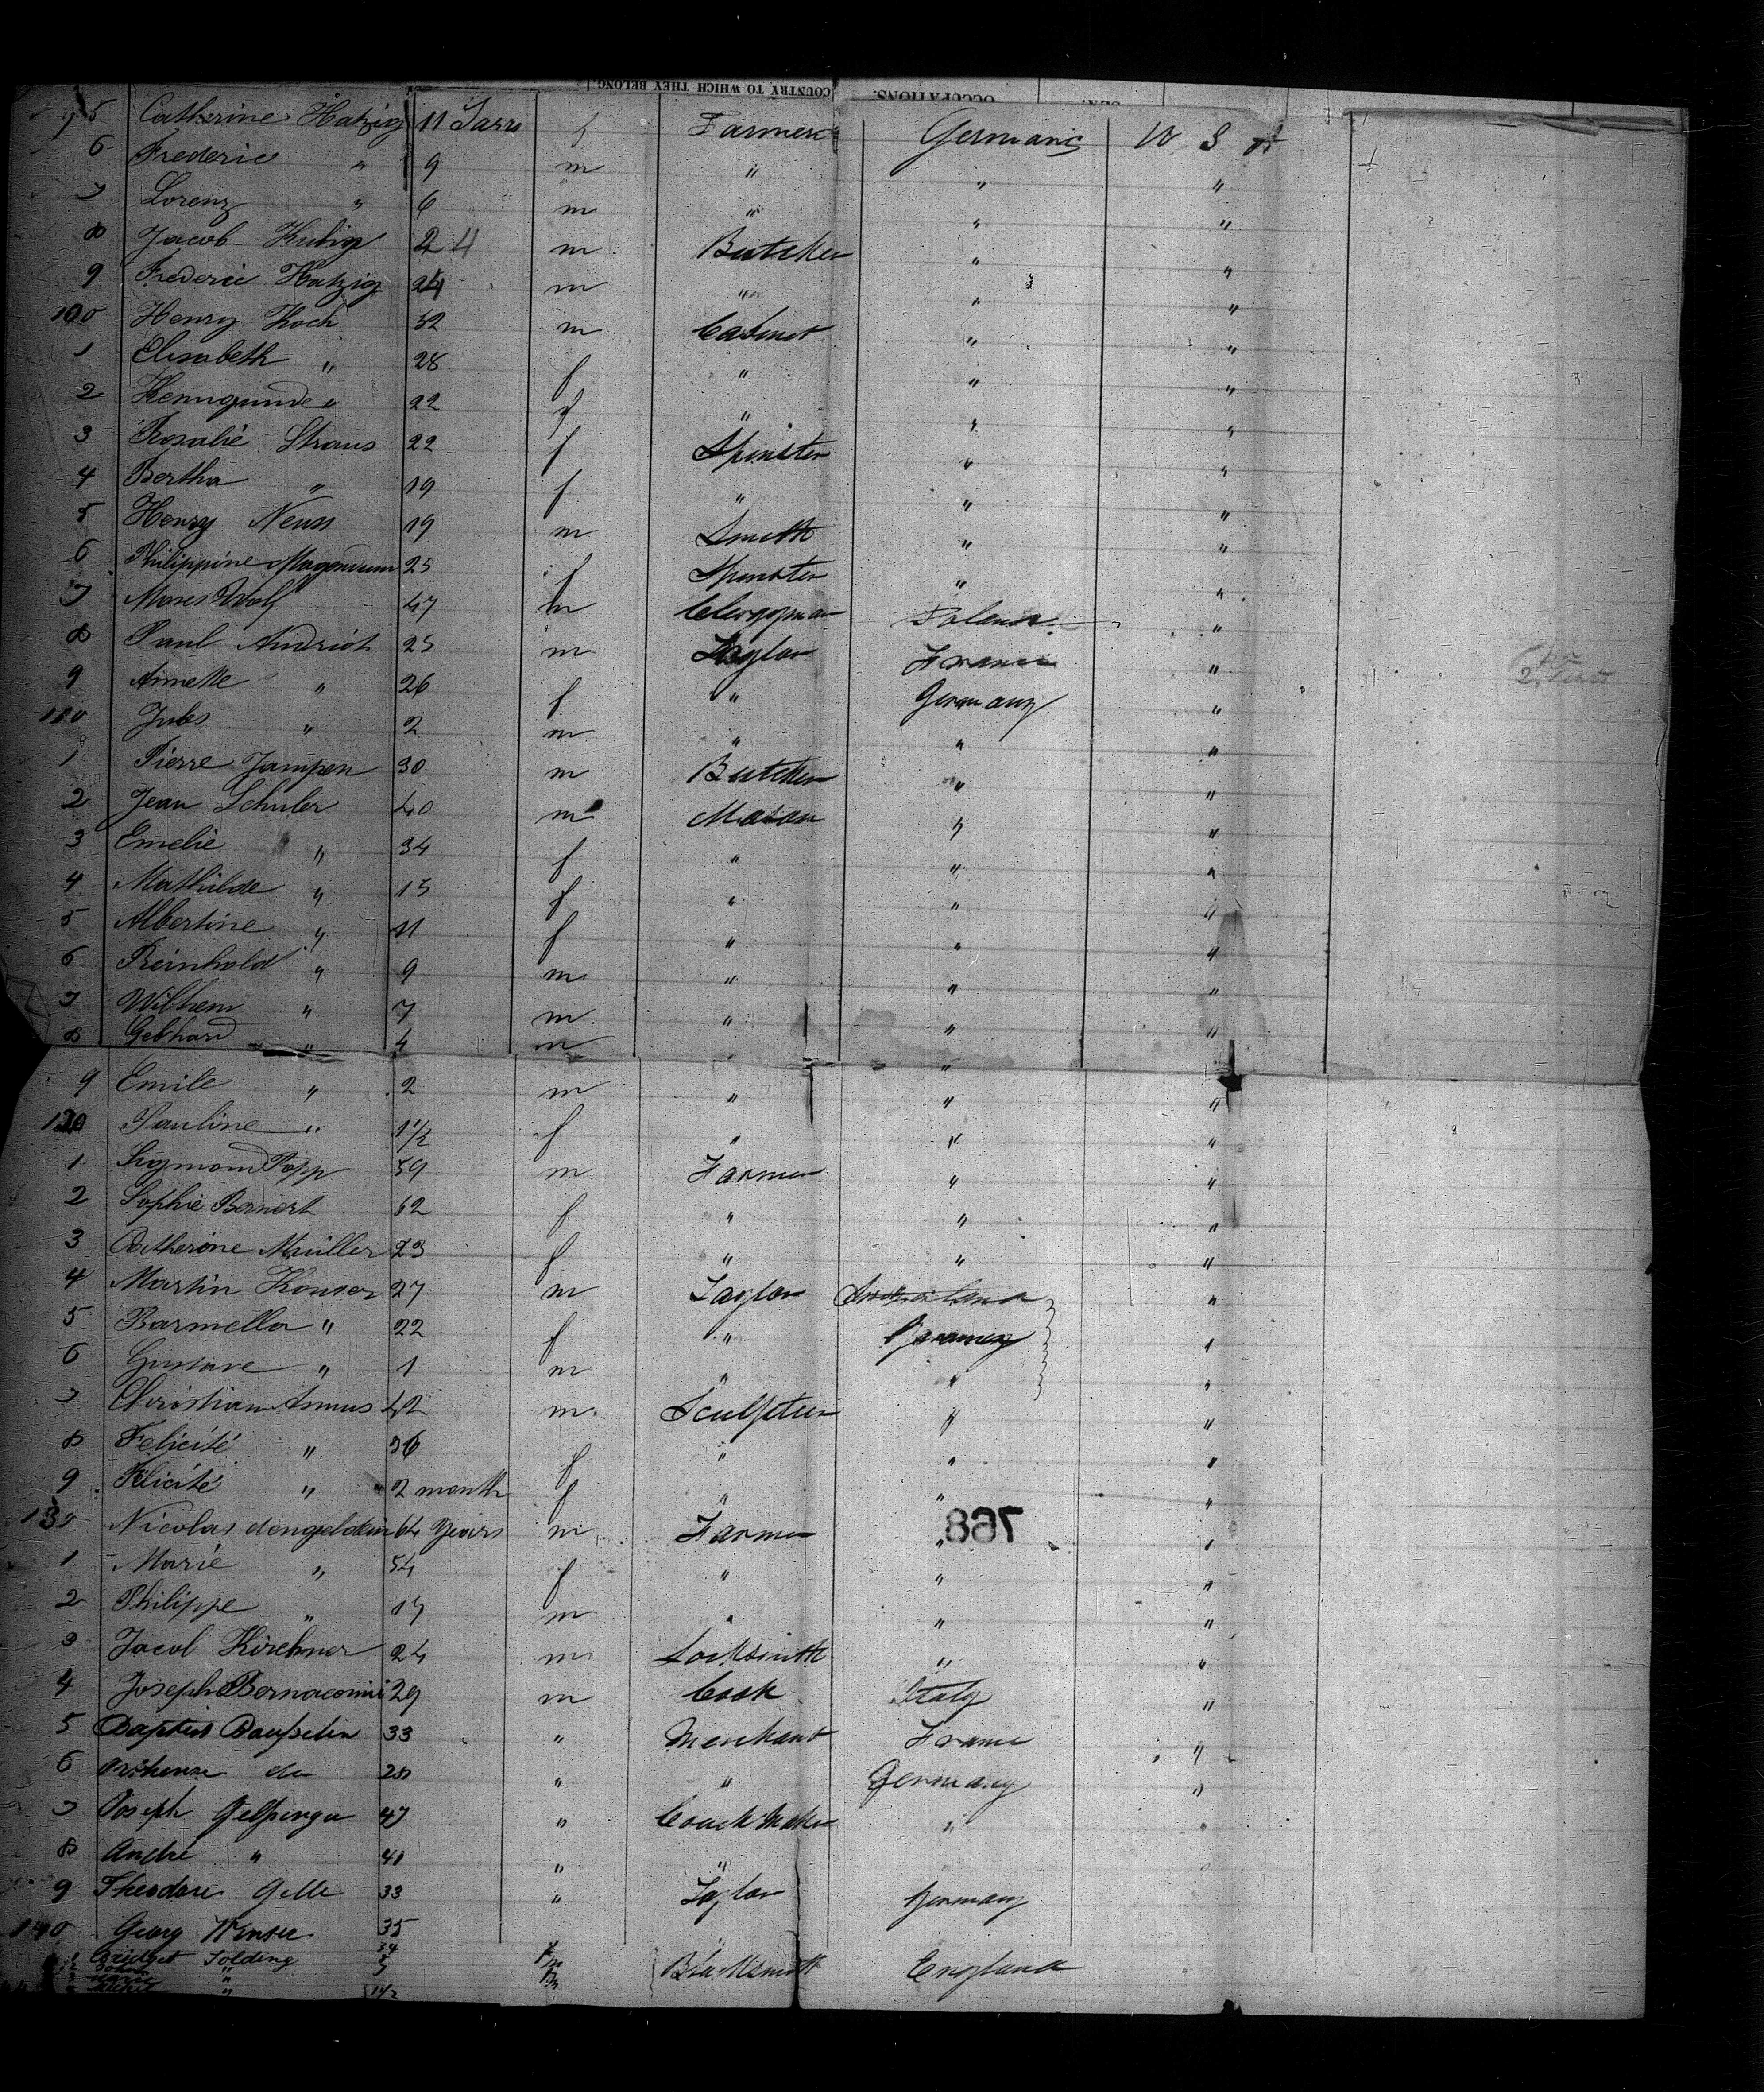 COUNTRY TO WHICH THEY BELONG. OCCUPATIONS. SEX.
5 Catherine Hatzig 11 f Farmer Germany U S
6 Frederic " 9 m " " "
7 Lorenz " 6 m " " "
8 Jacob 24 m Butcher " "
9 Frederic Hatzig 24 m " " "
100 Henry Koch 32 m Cabinet " "
1 Elisabeth " 28 f " " "
2 " 22 f " " "
3 Rosalie Straus 22 f Spinster " "
4 Bertha " 19 f " " "
5 Henry Neuss 19 m Smith " "
6 Philippine 25 f Spinster " "
7 Moses Wolf 47 m Clergyman "
8 Paul Andriot 25 m Taylor France "
9 Annette " 26 f " Germany "
110 Jules " 2 m " " "
1 Pierre Jampen 30 m Butcher " "
2 Jean Schuler 40 m Mason " "
3 Emelie " 34 f " " "
4 Mathilde " 15 f " " "
5 Albertine " 11 f " " "
6 Reinhold " 9 m " " "
7 Wilhem " 7 m " " "
8 Gebhard " 4 m " " "
9 Emile " 2 m " " "
120 Pauline " 1 1/2 f " " "
1 Sigmond Popp 59 m Farmer " "
2 Sophie Bernert 62 f " " "
3 Catherine Müller 23 f " " "
4 Martin Konser 27 m Taylor "
5 Barmella " 22 f " Germany "
6 Gustave " 1 m " " "
7 Christian Asmus 42 m Sculpteur " "
8 Felicité " 36 f " " "
9 Felicité " 2 month f " " "
130 Nicolas dengeldein 64 Years m Farmer " "
768
1 Marie " 54 f " " "
2 Philippe " 17 m " " "
3 Jacob Kirchner 24 m Locksmith " "
4 Joseph Bernacomi 29 m Cook Italy "
5 Baptist 33 " Merchant France "
6 do 28 " " Germany "
7 Joseph 47 " Coach Maker "
8 André " 41 " "
9 Theodore Gelle 33 " Taylor Germany
140 Georg 35
1 Bridget Solding 34 f Blacksmith England
2 "
3 "
" 1 1/2